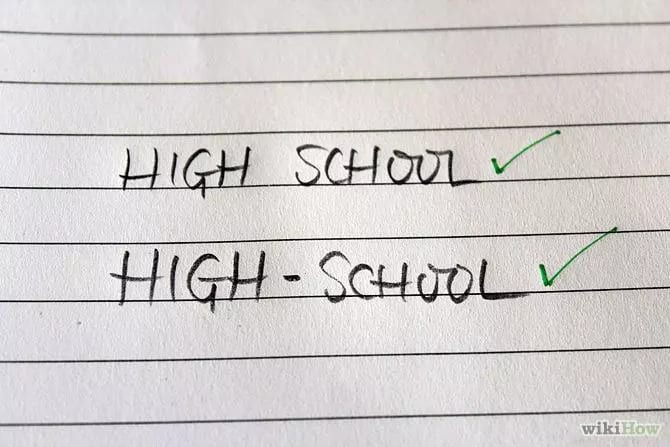 HIGH SCHOOL ✓
HIGH - SCHOOL ✓
wikiHow